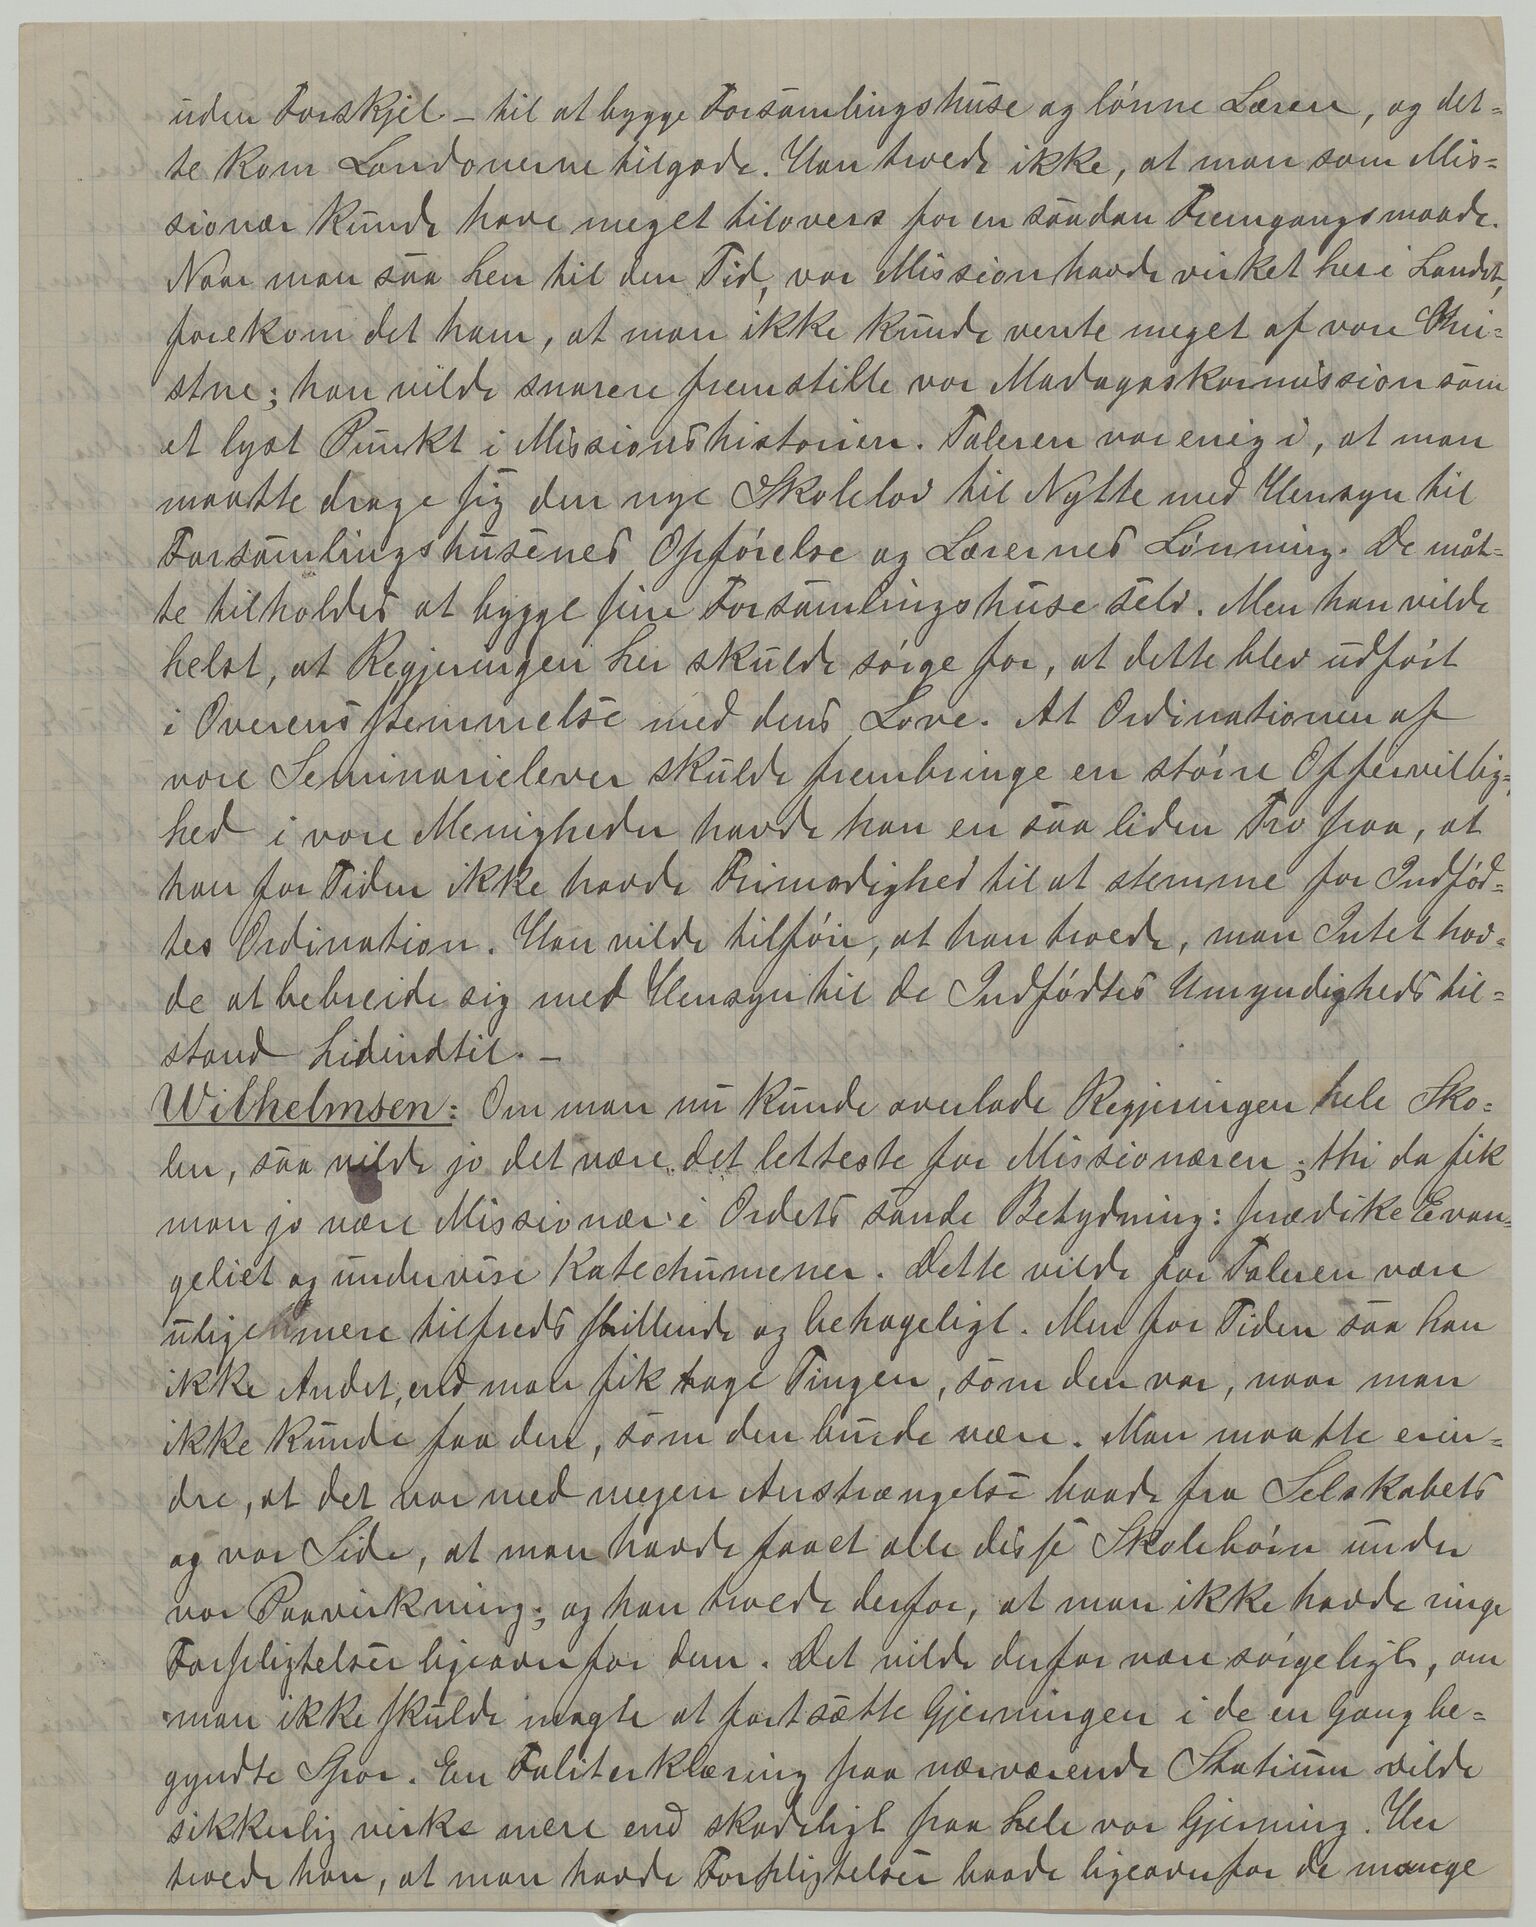 uden Forskjel – til at bygge Forsamlingshuse og lønne Lærere, og det=
te kom Londonerne tilgode. Han troede ikke, at man som Mis=
sionær kunde have meget tilovers for en saadan Fremgangsmaade.
Naar man saa hen til den Tid, vor Mission havde virket her i Landet,
forekom det ham, at man ikke kunde vente meget af vore Kri=
stne; han vilde snarere fremstille vor Madagaskarmission som
et lyst Punkt i Missionshistorien. Taleren var enig i, at man
maatte drage sig den nye Skolelov til Nytte med Hensyn til
Forsamlingshusenes Opførelse og Lærernes Lønning. De måt=
te tilholdes at bygge sine Forsamlingshuse selv. Men han vilde
helst, at Regjeringen her skulde sørge for, at dette blev udført
i Overensstemmelse med dens Love. At Ordinationen af
vore Seminarielever skulde frembringe en større Offervillig=
hed i vore Menigheder havde han en saa liden Tro paa, at
han for Tiden ikke havde Frimodighed til at stemme for Indfød=
tes Ordination. Han vilde tilføie, at han troede, man Intet hav=
de at bebreide sig med Hensyn til de Indfødtes Umyndigheds til=
stand hidindtil. –
Wilhelmsen: Om man nu kunde overlade Regjeringen hele Sko=
len, saa vilde jo det være det letteste for Missionæren; thi da fik
man jo være Missionær i Ordets sande Betydning: prædike Evan=
geliet og undervise Katechumener. Dette vilde for Taleren være
ulige mere tilfredsstillende og behageligt. Men for Tiden saa han
ikke Andet, end man fik tage Tingen, som den var, naar man
ikke kunde faa den, som den burde være. Man maatte erin=
dre, at det var med megen Anstrængelse baade fra Selskabets
og vor Side, at man havde faaet alle disse Skolebørn under
vor Paavirkning; og han troede derfor, at man ikke havde ringe
Forpligtelser ligeovenfor dem. Det vilde derfor være sørgeligt, om
man ikke skulde magte at fortsætte Gjerningen i de en Gang be=
gyndte Spor. En Falliterklæring paa nærværende Stadium vilde
sikkerlig virke mere end skadeligt paa hele vor Gjerning. Her
troede han, at man havde Forpligtelser baade ligeovenfor de mange